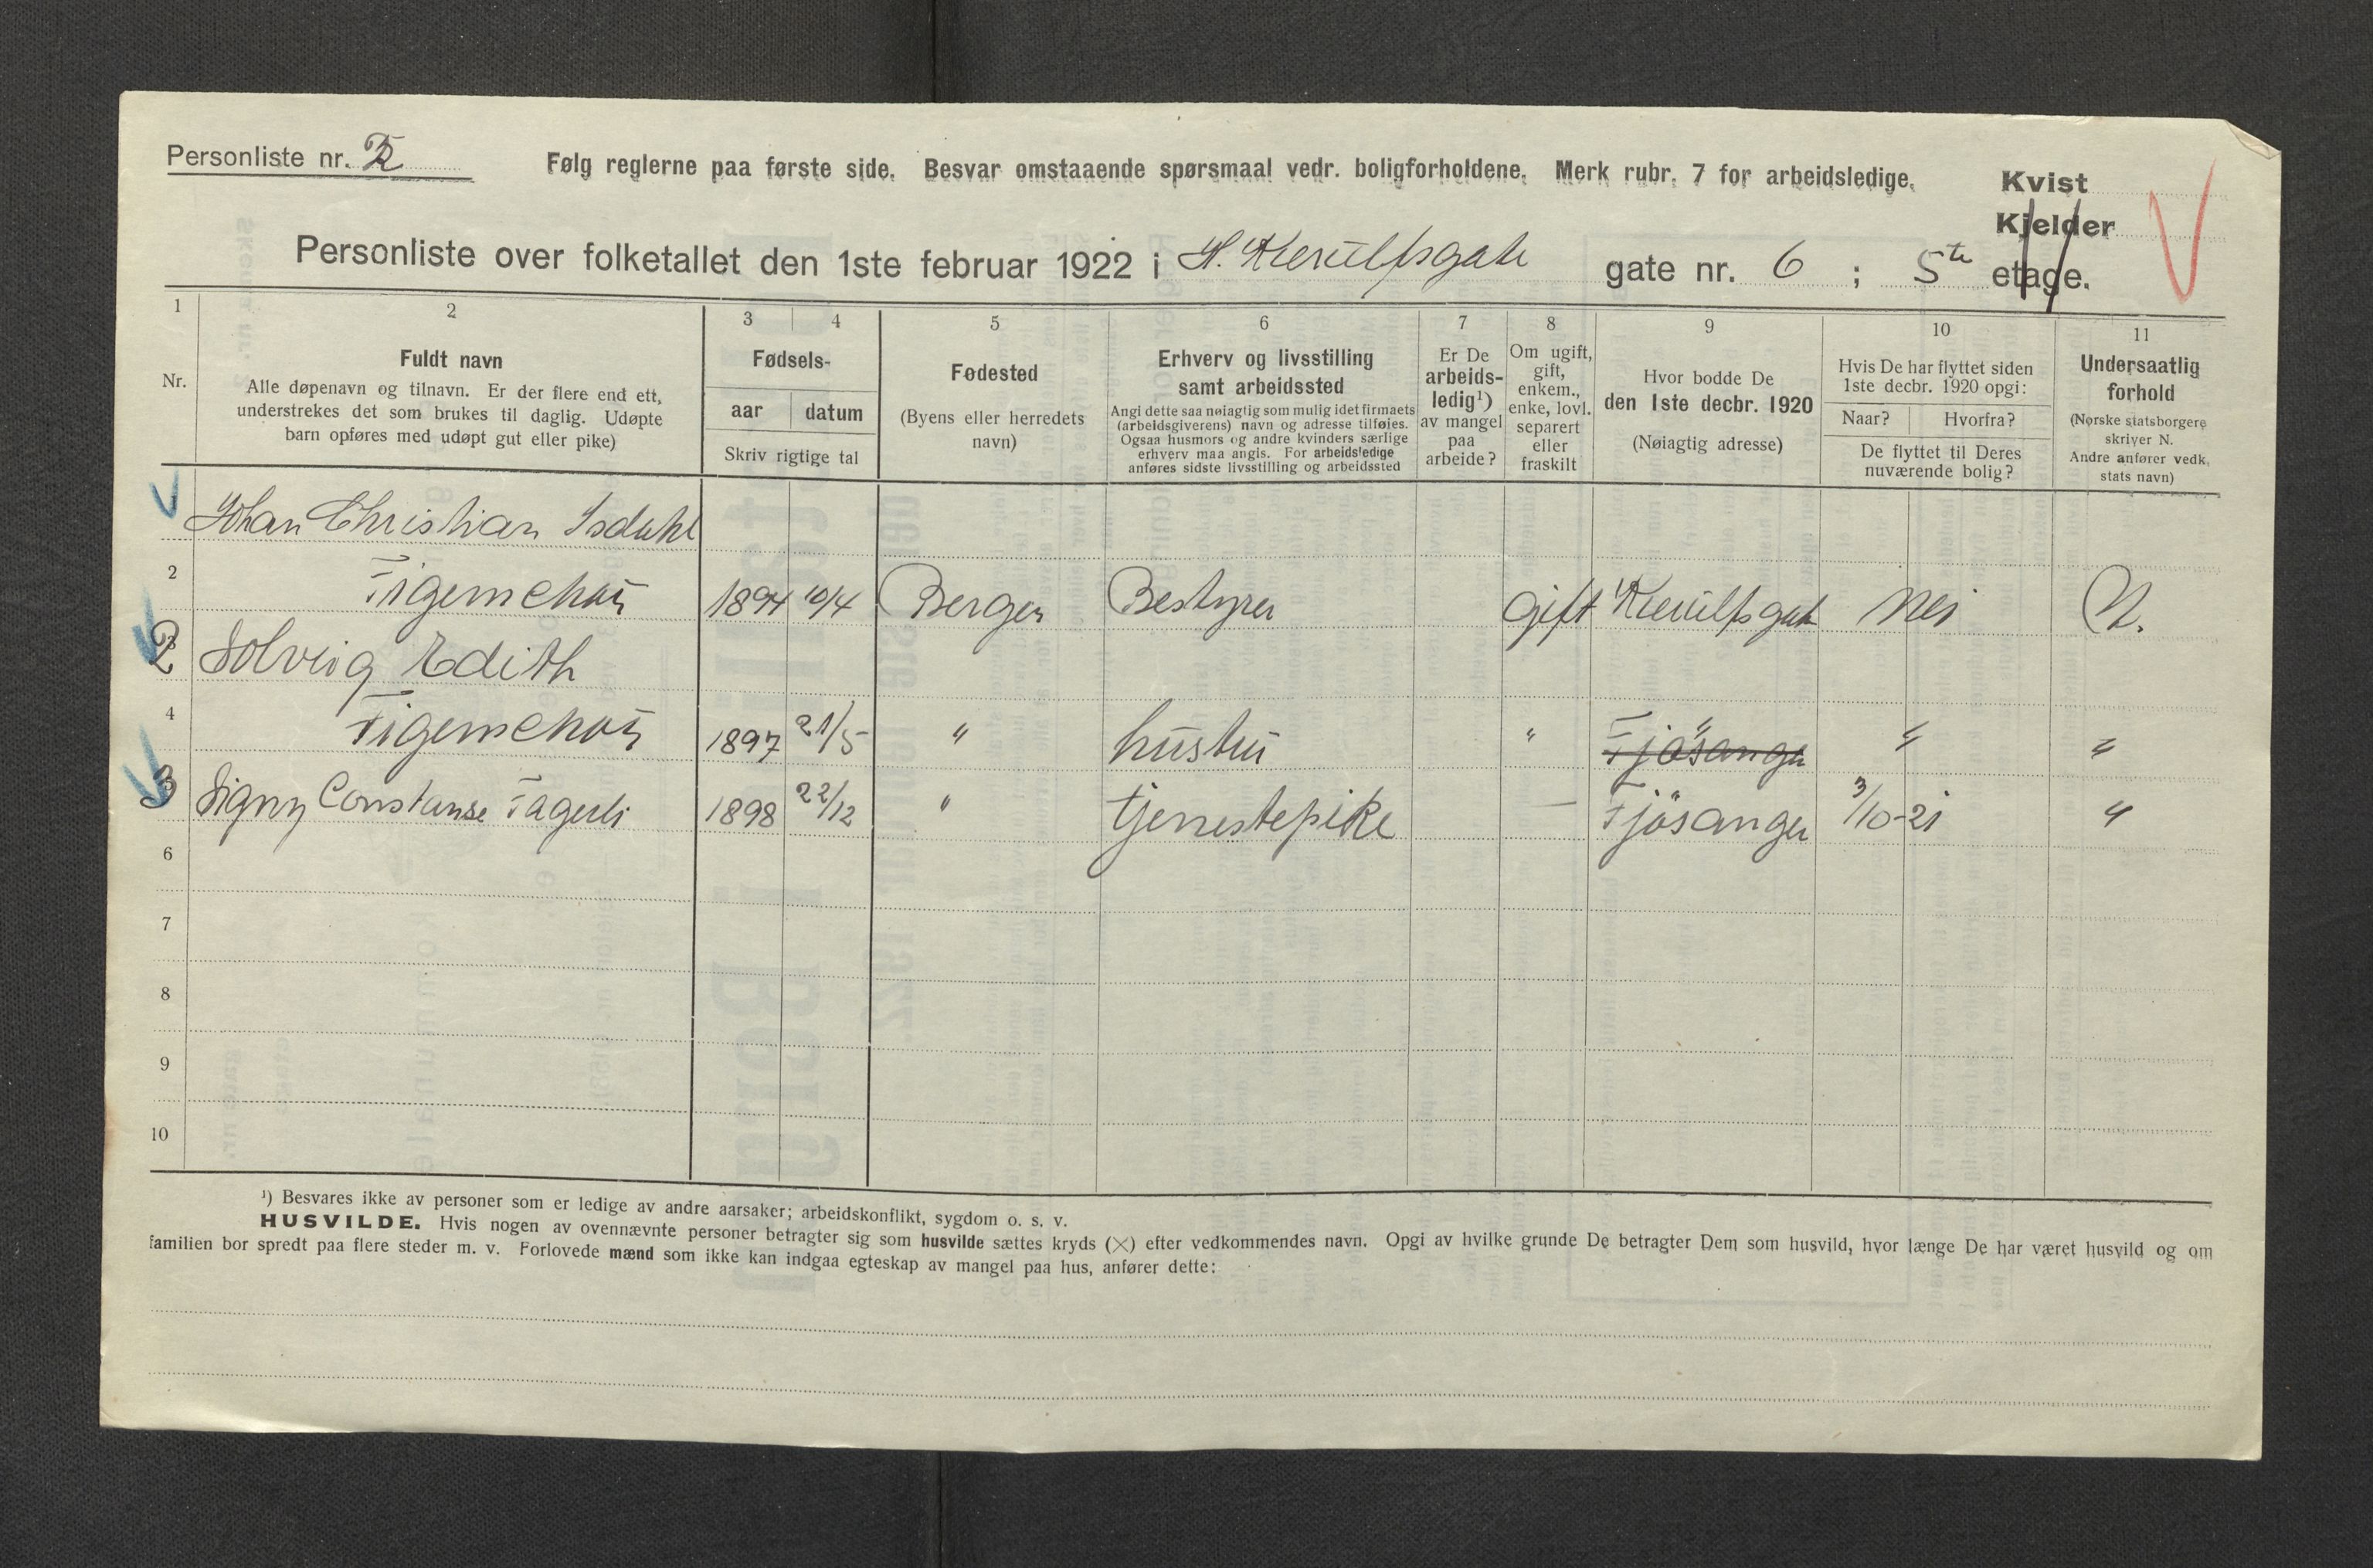 Personliste nr. 2
Følg reglerne paa første side. Besvar omstaaende spørsmaal vedr. boligforholdene. Merk rubr. 7 for arbeidsledige.
Kvist
Kjelder
Personliste over folketallet den 1ste februar 1922 i H. Kierulfsgate gate nr. 6 ; 5te etage.
1 2 3 4 5 6 7 8 9 10 11
Nr.
Fuldt navn
Alle døpenavn og tilnavn. Er der flere end ett,
understrekes det som brukes til daglig. Udøpte
barn opføres med udøpt gut eller pike)
Fødsels-
aar datum
Skriv rigtige tal
Fødested
(Byens eller herredets
navn)
Erhverv og livsstilling
samt arbeidssted
Angi dette saa nøiagtig som mulig idet firmaets
(arbeidsgiverens) navn og adresse tilføies.
Ogsaa husmors og andre kvinders særlige
erhverv maa angis. For arbeidsledige
anføres sidste livsstilling og arbeidssted
Er De
arbeids-
ledig¹)
av mangel
paa
arbeide?
Om ugift,
gift,
enkem.,
enke, lovl.
separert
eller
fraskilt
Hvor bodde De
den 1ste decbr. 1920
(Nøiagtig adresse)
Hvis De har flyttet siden
1ste decbr. 1920 opgi:
Naar? Hvorfra?
De flyttet til Deres
nuværende bolig?
Undersaatlig
forhold
(Norske statsborgere
skriver N.
Andre anfører vedk.
stats navn)
Johan Christian Isdahl
2 Figenschou 1894 10/4 Bergen Bestyrer Gift Kierulfsgate Nei N.
2 Solveig Edith
4 Figenschou 1897 21/5 " hustru " Fjösanger " "
3 Signy Constanse Fagerli 1898 22/12 " tjenestepike — Fjösanger 3/10-21 "
6
7
8
9
10
¹) Besvares ikke av personer som er ledige av andre aarsaker; arbeidskonflikt, sygdom o. s. v.
HUSVILDE. Hvis nogen av ovennævnte personer betragter sig som husvilde sættes kryds (×) efter vedkommendes navn. Opgi av hvilke grunde De betragter Dem som husvild, hvor længe De har været husvild og om
familien bor spredt paa flere steder m. v. Forlovede mænd som ikke kan indgaa egteskap av mangel paa hus, anfører dette: